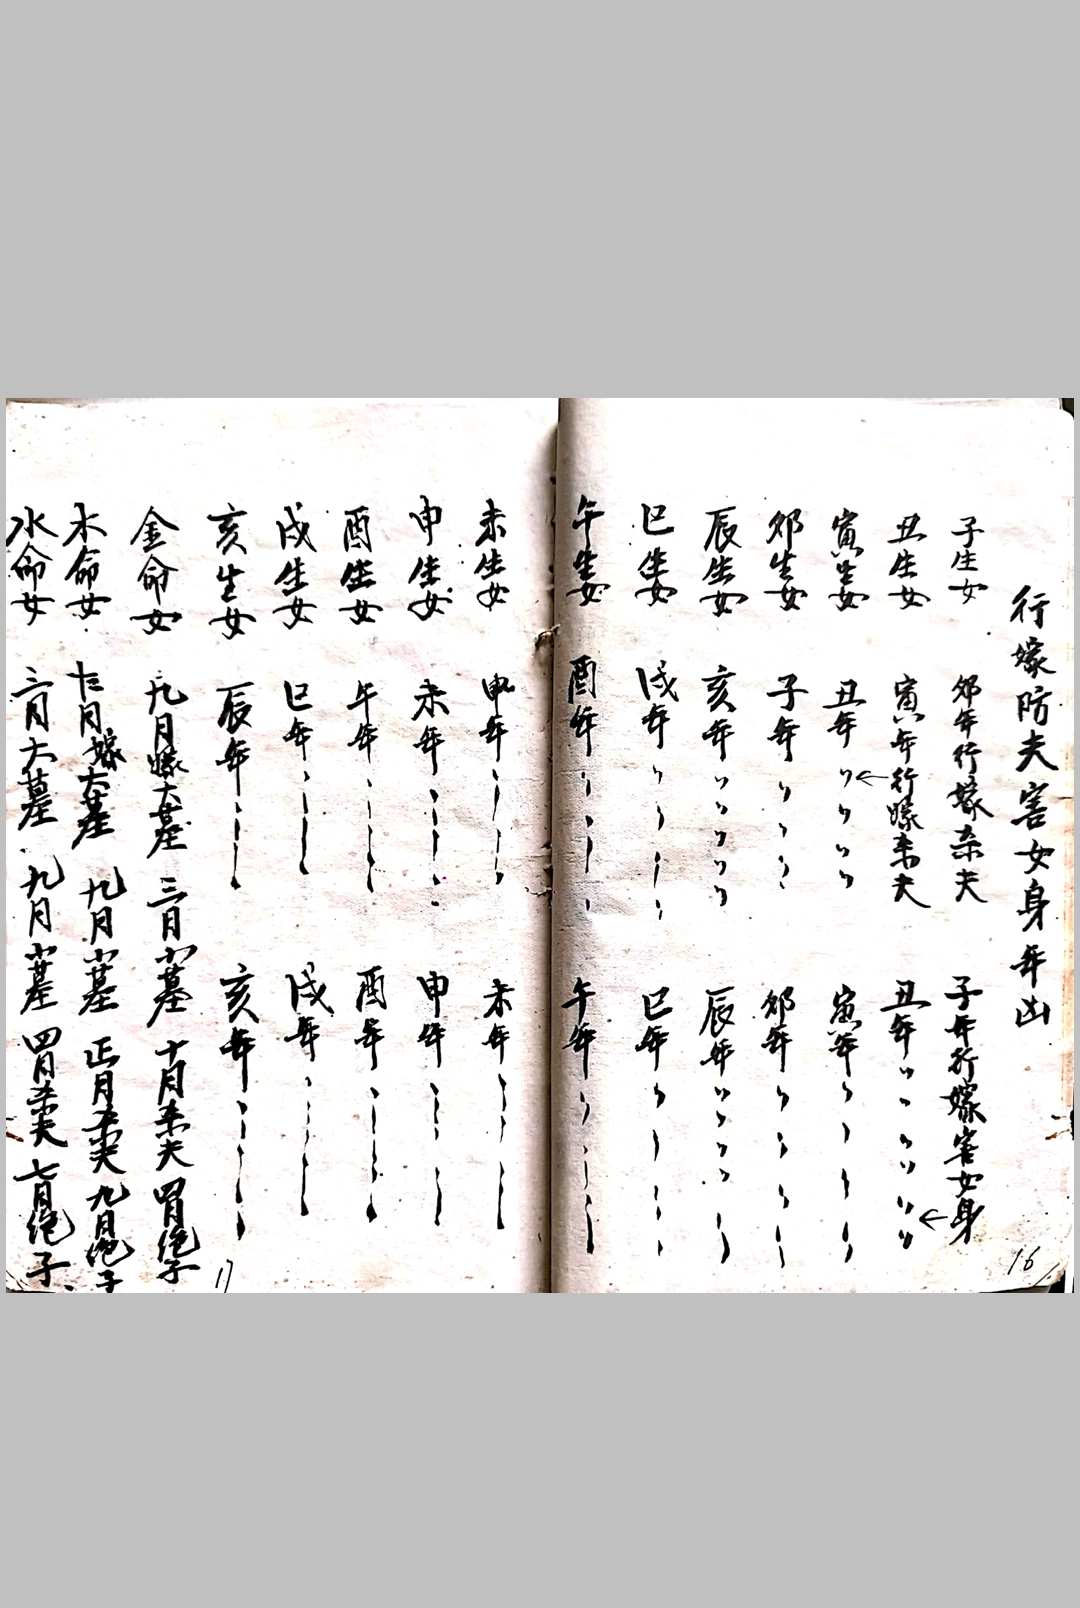 行嫁防夫害女身年凶
子生女 卯年行嫁杀夫 子年行嫁害女身
丑生女 寅年行嫁杀夫 丑年〃〃〃〃
寅生女 丑年〃〃〃〃 寅年〃〃〃〃
卯生女 子年〃〃〃〃 卯年〃〃〃〃
辰生女 亥年〃〃〃〃 辰年〃〃〃〃
巳生女 戌年〃〃〃〃 巳年〃〃〃〃
午生女 酉年〃〃〃〃 午年〃〃〃〃
16
未生女 申年〃〃〃〃 未年〃〃〃〃
申生女 未年〃〃〃〃 申年〃〃〃〃
酉生女 午年〃〃〃〃 酉年〃〃〃〃
戌生女 巳年〃〃〃〃 戌年〃〃〃〃
亥生女 辰年〃〃〃〃 亥年〃〃〃〃
金命女 九月嫁大墓 三月小墓 十月杀夫 四月绝子
木命女 十二月嫁大墓 九月小墓 正月杀夫 九月绝子
水命女 三月大墓 九月小墓 四月杀夫 七月绝子
17